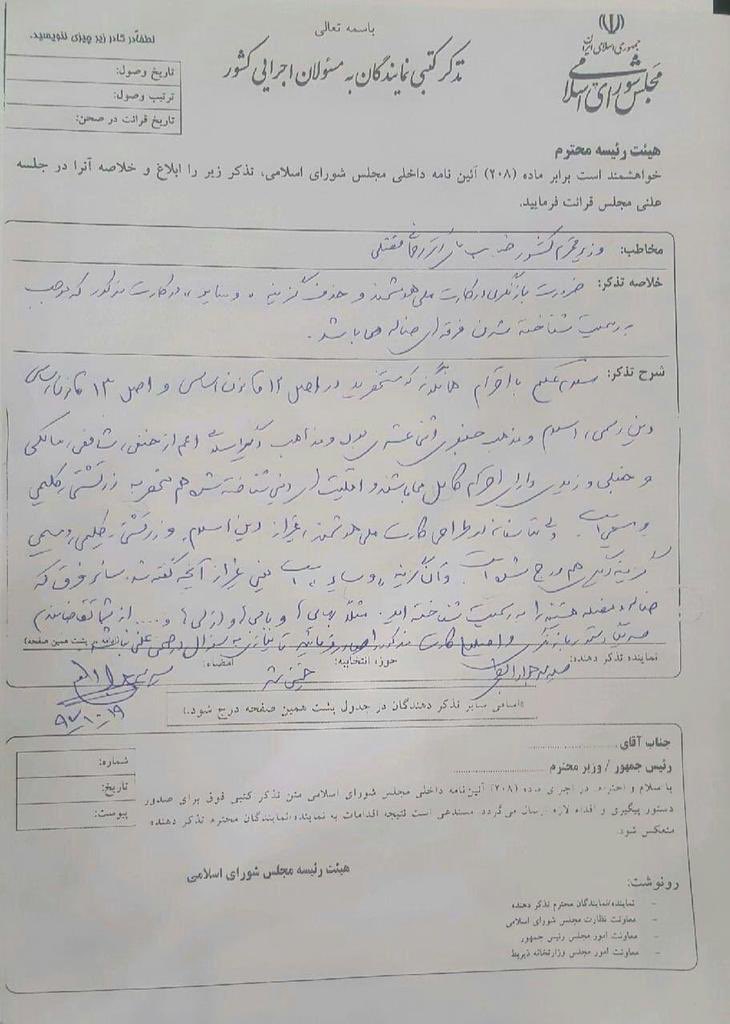 باسمه تعالی
جمهوری اسلامی ایران
مجلس شورای اسلامی
تذکر کتبی نمایندگان به مسئولان اجرایی کشور
لطفاً در کادر زیر چیزی ننویسید.
تاریخ وصول:
ترتیب وصول:
تاریخ قرائت در صحن:
هیئت رئیسه محترم
خواهشمند است برابر ماده (۲۰۸) آئین نامه داخلی مجلس شورای اسلامی، تذکر زیر را ابلاغ و خلاصه آنرا در جلسه
علنی مجلس قرائت فرمایید.
مخاطب: وزیر محترم کشور جناب آقای دکتر رحمانی فضلی
خلاصه تذکر: ضرورت بازنگری در کارت ملی هوشمند و حذف گزینه «و سایر» در کارت مذکور که موجب
به رسمیت شناخته شدن فرقه‌های ضاله می‌باشد.
شرح تذکر: سلام علیکم با احترام همانگونه که مستحضرید در اصل ۱۲ قانون اساسی و اصل ۱۳ قانون اساسی
دین رسمی، اسلام و مذهب جعفری اثنی عشری بوده و مذاهب دیگر اسلامی اعم از حنفی، شافعی، مالکی
و حنبلی و زیدی دارای احترام کامل می‌باشند و اقلیت‌های دینی شناخته شده هم منحصر به زرتشتی، کلیمی
و مسیحی است. ولی متاسفانه در طراحی کارت ملی هوشمند، غیر از دین اسلام و زرتشتی، کلیمی و مسیحی
گزینه دیگری هم درج شده است و آن گزینه «و سایر» است یعنی غیر از آنچه گفته شد سایر فرق که
ضاله و مضله هستند را به رسمیت شناخته‌اید. مثلاً بهایی‌ها و بابی‌ها و ازلی‌ها و .... از شما تقاضامندم
دستور بازنگری و اصلاح کارت مذکور را صادر فرمایید تا نیازی به سوال در صحن علنی نباشد
(ادامه در پشت همین صفحه)
نماینده تذکر دهنده:
حوزه انتخابیه: خمینی شهر
امضاء:
۹۷/۱۰/۱۹
«اسامی سایر تذکر دهندگان در جدول پشت همین صفحه درج شود.»
جناب آقای ..............
رئیس جمهور / وزیر محترم ..............
شماره:
تاریخ:
پیوست:
با سلام و احترام، در اجرای ماده (۲۰۸) آئین‌نامه داخلی مجلس شورای اسلامی متن تذکر کتبی فوق برای صدور
دستور پیگیری و اقدام لازم ارسال می‌گردد. مستدعی است نتیجه اقدامات به نماینده/نمایندگان محترم تذکر دهنده
منعکس شود.
هیئت رئیسه مجلس شورای اسلامی
رونوشت:
- نماینده/نمایندگان محترم تذکر دهنده
- معاونت نظارت مجلس شورای اسلامی
- معاونت امور مجلس رئیس جمهور
- معاونت امور مجلس وزارتخانه ذیربط